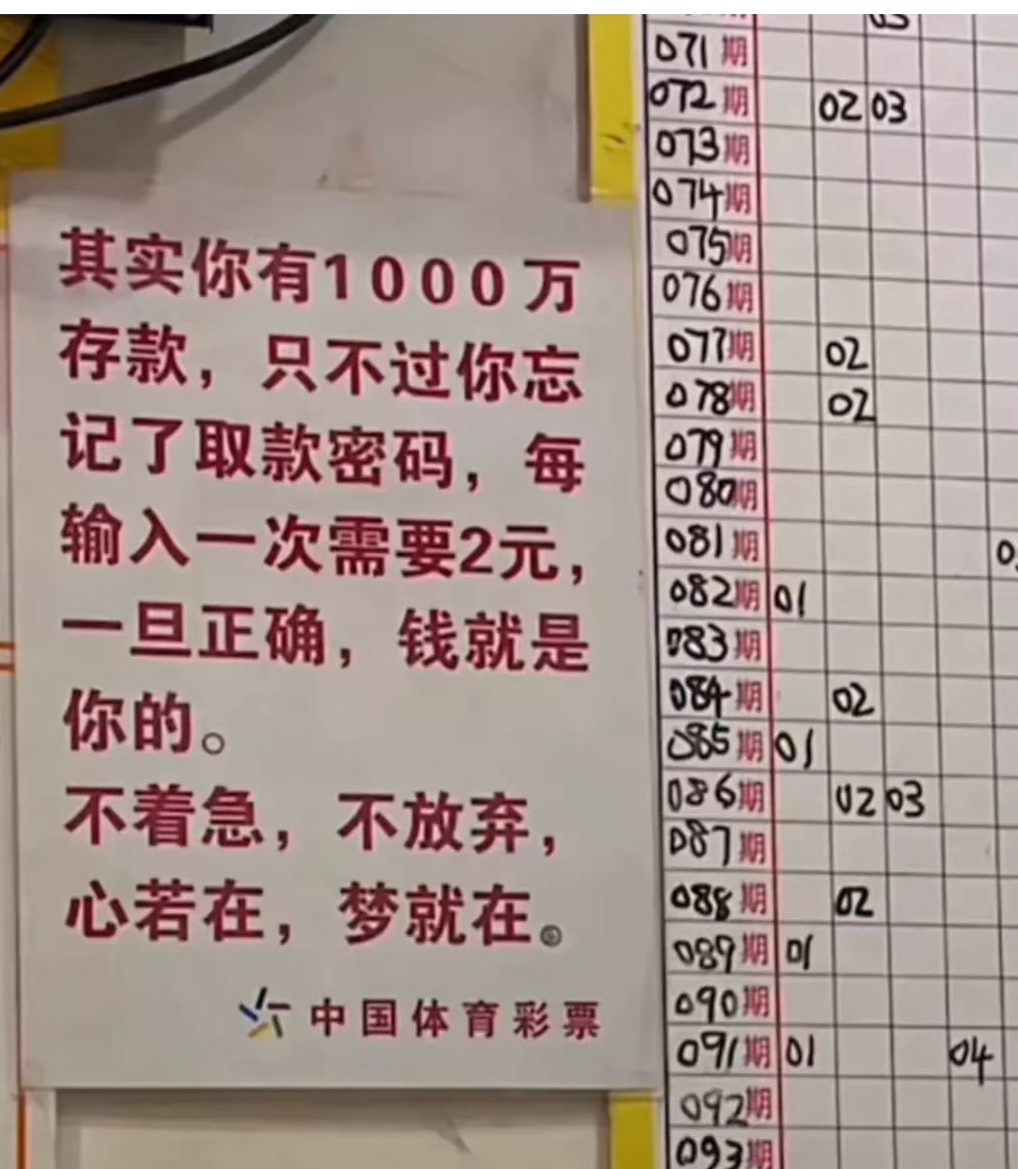 其实你有1000万
存款，只不过你忘
记了取款密码，每
输入一次需要2元，
一旦正确，钱就是
你的。
不着急，不放弃，
心若在，梦就在。
中国体育彩票
071期
072期 02 03
073期
074期
075期
076期
077期 02
078期 02
079期
080期
081期
082期 01
083期
084期 02
085期 01
086期 02 03
087期
088期 02
089期 01
090期
091期 01 04
092期
093期